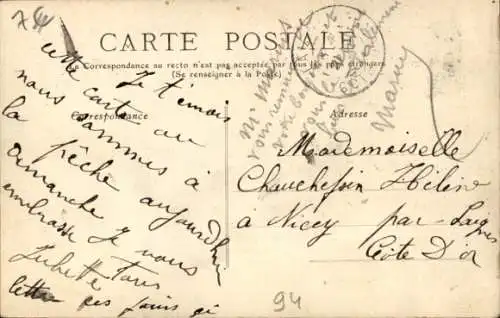 74
CARTE POSTALE
La Correspondance au recto n'est pas acceptée par tous les pays étrangers
(Se renseigner à la Poste)
Correspondance
Adresse
Je t'envois
cette carte au
nous sommes à
la pêche aujourd'hui
Dimanche Je vous
embrasse tous
Juliette
lettre ces jours çi
Mr
vous remercie
votre bon
Mademoiselle
Chauchefoin Hélène
à Nicey par Laignes
Côte D'or
94